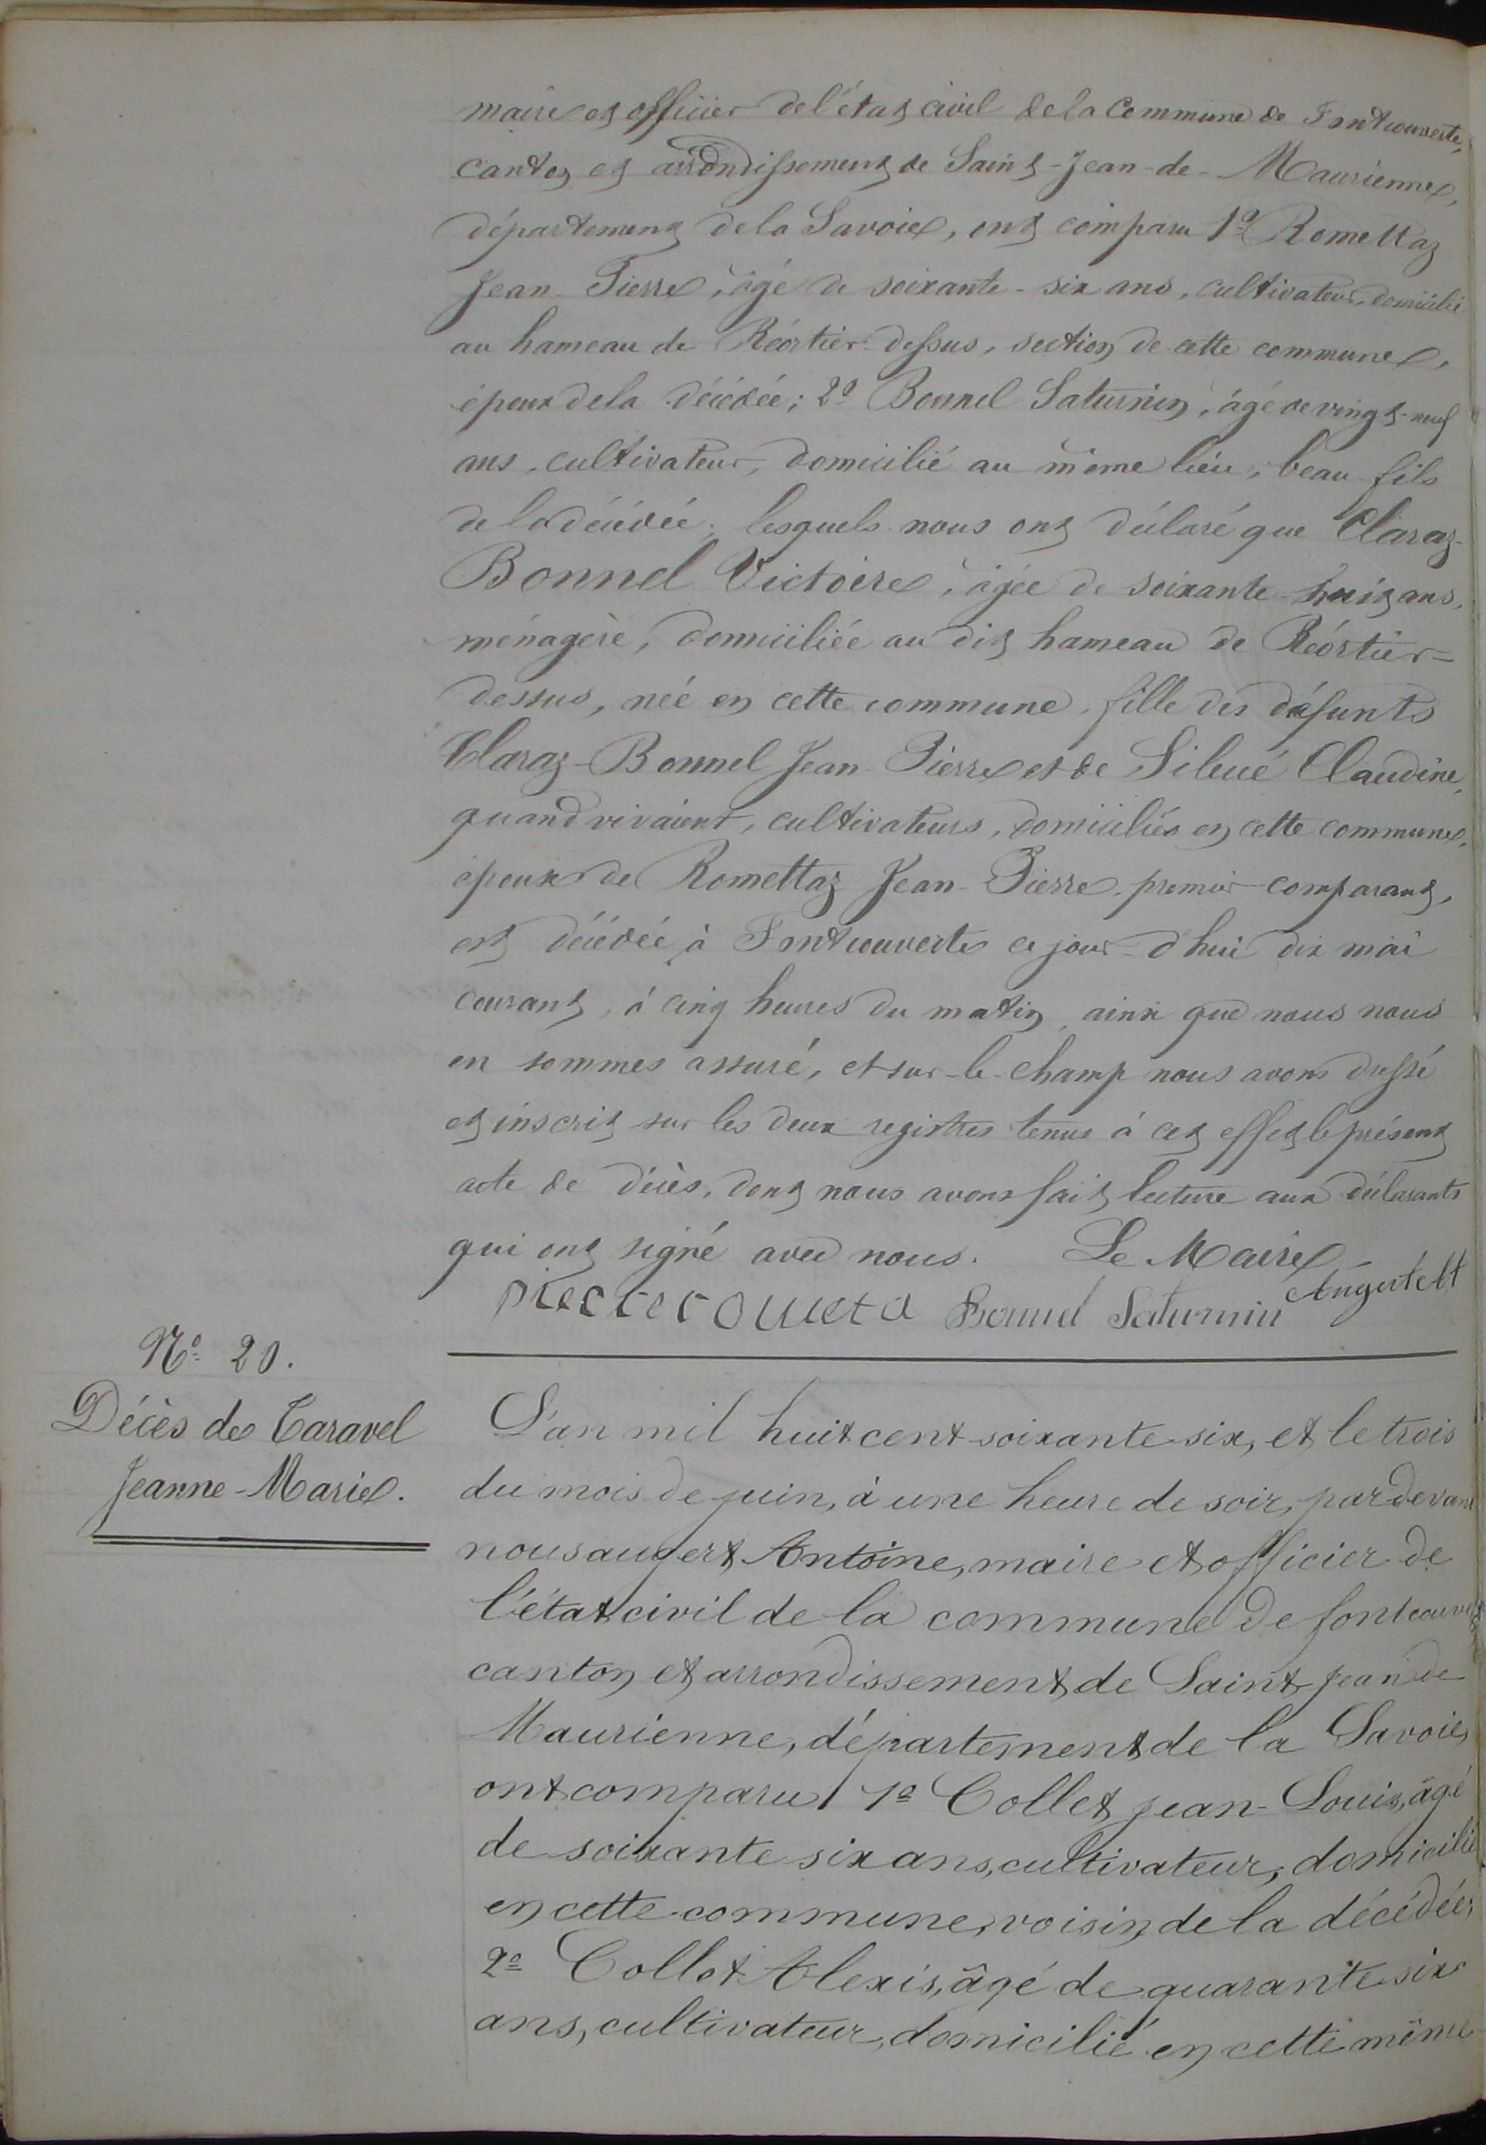 maire et officier de l'état civil de la Commune de Fontcouverte,
canton et arrondissement de Saint-Jean-de-Maurienne,
département de la Savoie, ont comparu 1º Romettaz
Jean Pierre, âgé de soixante-six ans, cultivateur, domicilié
au hameau de Réortier-dessus, section de cette commune,
époux de la décédée; 2º Bonnel Saturnin, âgé de vingt-neuf
ans, cultivateur, domicilié au même lieu, beau-fils
de la décédée; lesquels nous ont déclaré que Claraz-
Bonnel Victoire, âgée de soixante-huit ans,
ménagère, domiciliée au dit hameau de Réortier-
dessus, née en cette commune, fille des défunts
Claraz-Bonnel Jean-Pierre et de Silvé Claudine,
quand vivaient, cultivateurs, domiciliés en cette commune,
épouse de Romettaz Jean-Pierre, premier comparant,
est décédée à Fontcouverte ce jour-d'hui dix mai
courant, à cinq heures du matin, ainsi que nous nous
en sommes assuré, et sur-le-champ nous avons dressé
et inscrit sur les deux registres tenus à cet effet le présent
acte de décès, dont nous avons fait lecture aux déclarants
qui ont signé avec nous. Le Maire
Bonnel Saturnin
Nº 20.
Décès de Taravel
Jeanne-Marie.
L'an mil huit cent soixante six, et le trois
du mois de juin, à une heure de soir, par devant
nous augert Antoine, maire et officier de
l'état civil de la commune de fontcouverte
canton et arrondissement de Saint jean de
Maurienne, département de la Savoie,
ont comparu 1º Collet jean-Louis, âgé
de soixante six ans, cultivateur, domicilié
en cette commune, voisin de la décédée,
2º Collet Alexis, âgé de quarante six
ans, cultivateur, domicilié en cette même